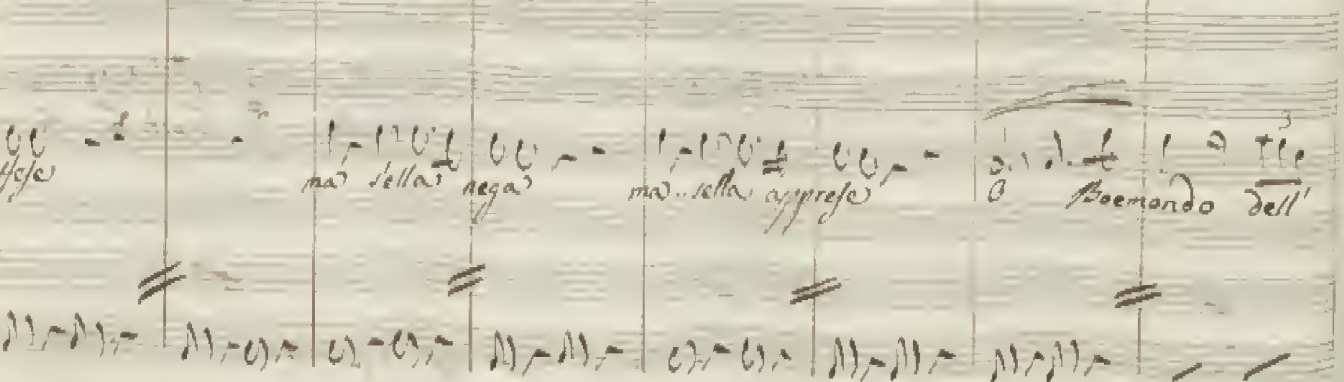 ma s'ella nega ma s'ella apprese O Boemondo dell'